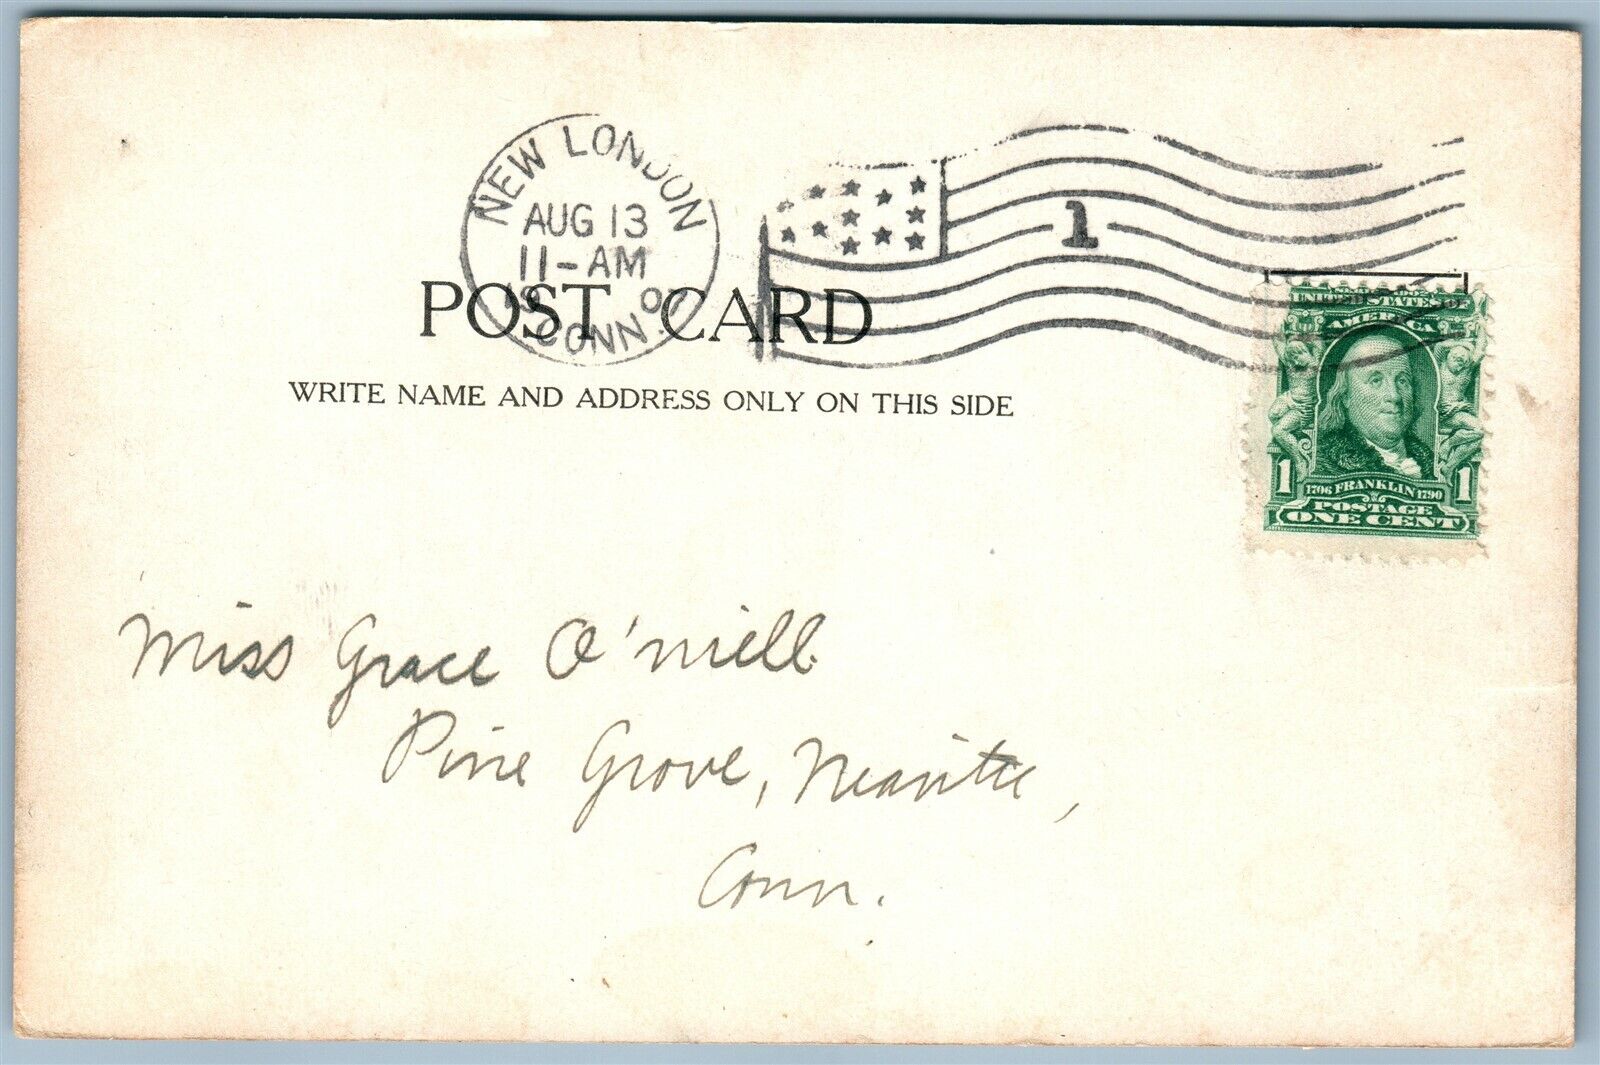 NEW LONDON
AUG 13
11-AM
19 07
CONN.
1
POST CARD
WRITE NAME AND ADDRESS ONLY ON THIS SIDE
SERIES 1902
UNITED STATES OF
AMERICA
1 1706 FRANKLIN 1790 1
POSTAGE
ONE CENT
Miss Grace O'niell.
Pine Grove, Niantic,
Conn.